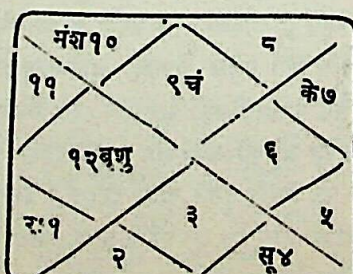 मंश१० ८
११ ९चं के७
१२बृशु ६
रा१ ३ ५
२ सू४